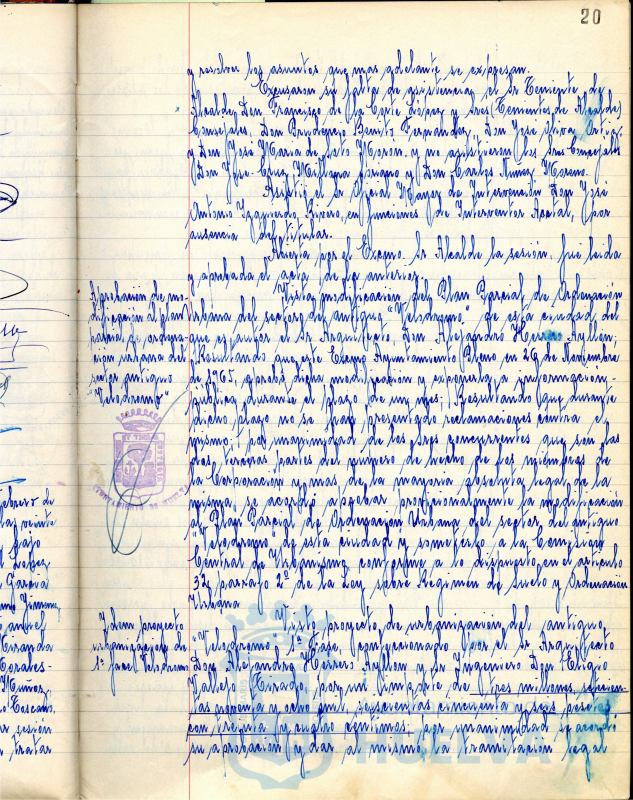 20
y resolver los asuntos que mas adelante se expresan.
Excusaron su falta de asistencia, el Sr. Teniente de
Alcalde, Don Francisco de la Corte López y tres (Tenientes de Alcalde)
Concejales, Don Prudencio Benito Fernández, Don José Oliva
y Don José María de Soto Morón, y no asistieron los Sres. Concejales
Don José Cruz Millana y Don Carlos Núñez Moreno.
Asistió el Sr. Oficial Mayor de Intervención Don José
Antonio Izquierdo Rivero, en funciones de Interventor Acctal, por
ausencia del titular.
Abierta por el Excmo. Sr. Alcalde la sesión, fué leida
y aprobada el acta de la anterior.
Aprobación de mo-
dificación al plan
parcial de ordena-
ción urbana del
sector antiguo
"Velodromo"
Vista modificación del Plan Parcial de Ordenación
Urbana del sector del antiguo "Velodromo" de esta ciudad del
que es autor el Sr. Arquitecto, Don Alejandro Herrero Ayllon;
Resultando que este Excmo Ayuntamiento Pleno en 29 de Noviembre
de 1965, aprobó dicha modificación y expuesta a información
publica durante el plazo de un mes; Resultando que durante
dicho plazo no se han presentado reclamaciones contra el
mismo; por unanimidad de los Sres concurrentes que son las
dos terceras partes del número de hecho de los miembros de
la Corporación y mas de la mayoría absoluta legal de la
misma, se acordó aprobar provisionalmente la modificación
al Plan Parcial de Ordenación Urbana del sector del antiguo
"Velodromo" de esta ciudad y someterlo a la Comisión
Central de Urbanismo conforme a lo dispuesto en el artículo
32, parrafo 2º de la Ley sobre Regimen de Suelo y Ordenación
Urbana
Idem proyecto
urbanización de
1ª fase Velodromo
Visto proyecto de urbanización del antiguo
"Velodromo 1ª Fase, confeccionado por el Sr. Arquitecto
Don Alejandro Herrero Ayllon y Sr. Ingeniero Don Eligio
Vallejo Tirado, por un importe de tres millones, setecien-
tas noventa y ocho mil, seiscientas cincuenta y seis pesetas
con treinta y cuatro centimos, por unanimidad se acordó
su aprobación y dar al mismo la tramitación legal
febrero de
las veinte
bajo
López
García
Miranda
Morales-
Muñoz
Toscano
sesión
tratar
HUELVA